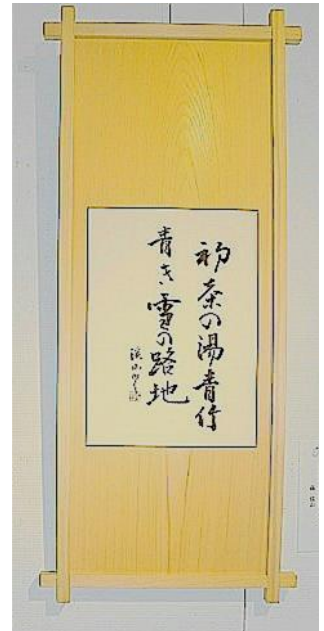 初茶の湯青竹
青き雪の路地
渓山